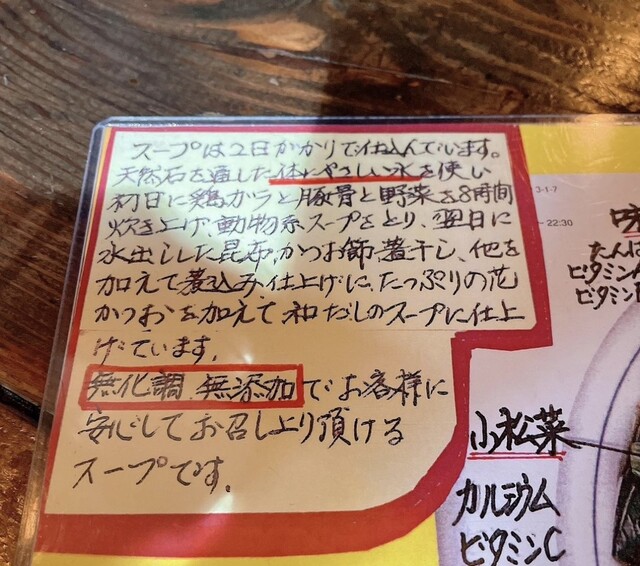 スープは2日がかりで仕込んでいます。
天然石を通した体にやさしい水を使い
初日に鶏ガラと豚骨と野菜を8時間
炊き上げ、動物系スープをとり、翌日に
水出しした昆布、かつお節、煮干し、他を
加えて煮込み仕上げに、たっぷりの花
かつおを加えて、和だしのスープに仕上
げています。
無化調、無添加でお客様に
安心してお召し上り頂ける
スープです。
3-1-7
22:30
たんぱ
ビタミン
ビタミン
小松菜
カルシウム
ビタミンC